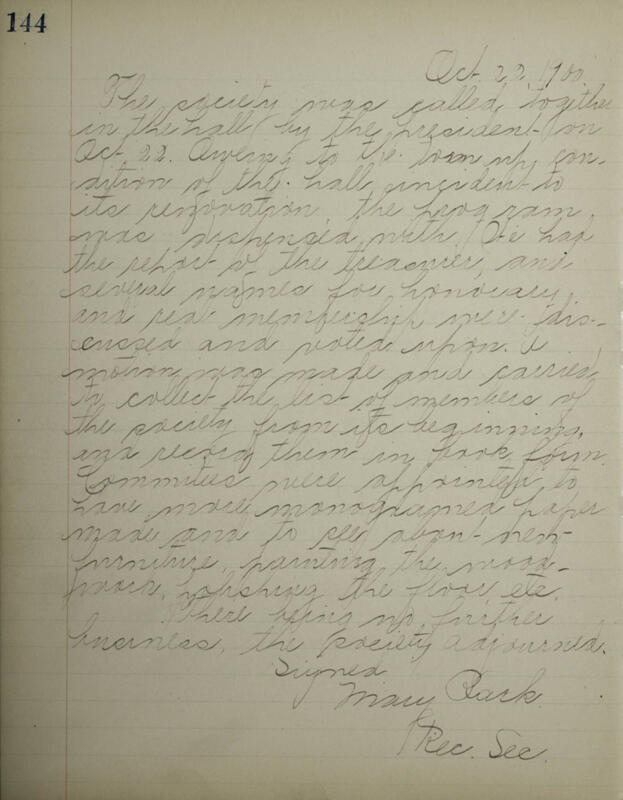 144
Oct. 22, 1900
The society was called together
in the hall by the president on
Oct. 22. Owing to the torn up con-
dition of the hall incident to
its renovation, the program
was dispensed with. We had
the report of the treasurer, and
several names for honorary
and real membership were dis-
cussed and voted upon. A
motion was made and carried
to collect the list of members of
the society from its beginning,
and record them in book form.
Committees were appointed to
have more monogramed paper
made and to see about new
furniture, painting the wood-
work, polishing the floor, etc.
There being no further
business, the society adjourned.
Signed
Mary Park
Rec. Sec.